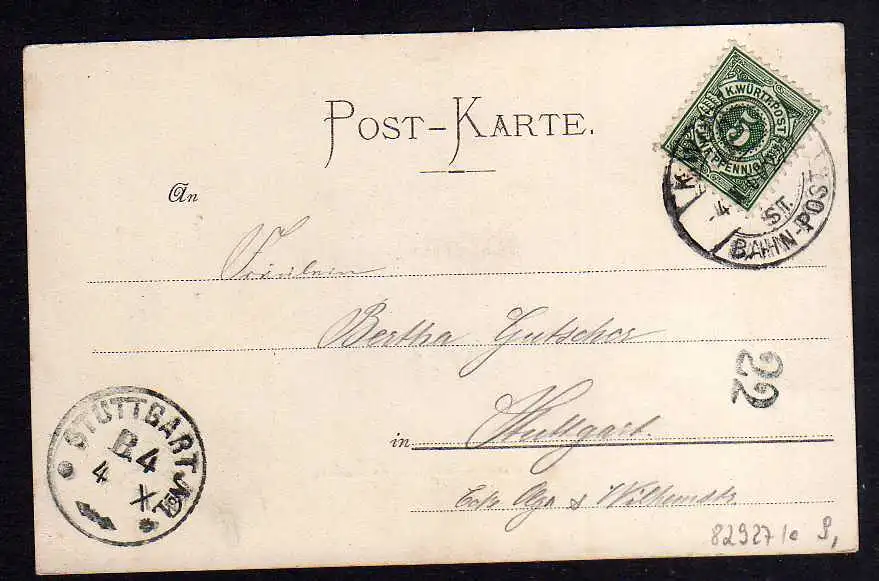 POST-KARTE.
K. WÜRTT. POST
5
PFENNIG
K. W.
ST.
BAHN-POST
An
Fräulein
Bertha Gutscher
22
in Stuttgart.
Ecke Olga & Wilhelmstr.
STUTTGART
B. 4
4 X
82927/o